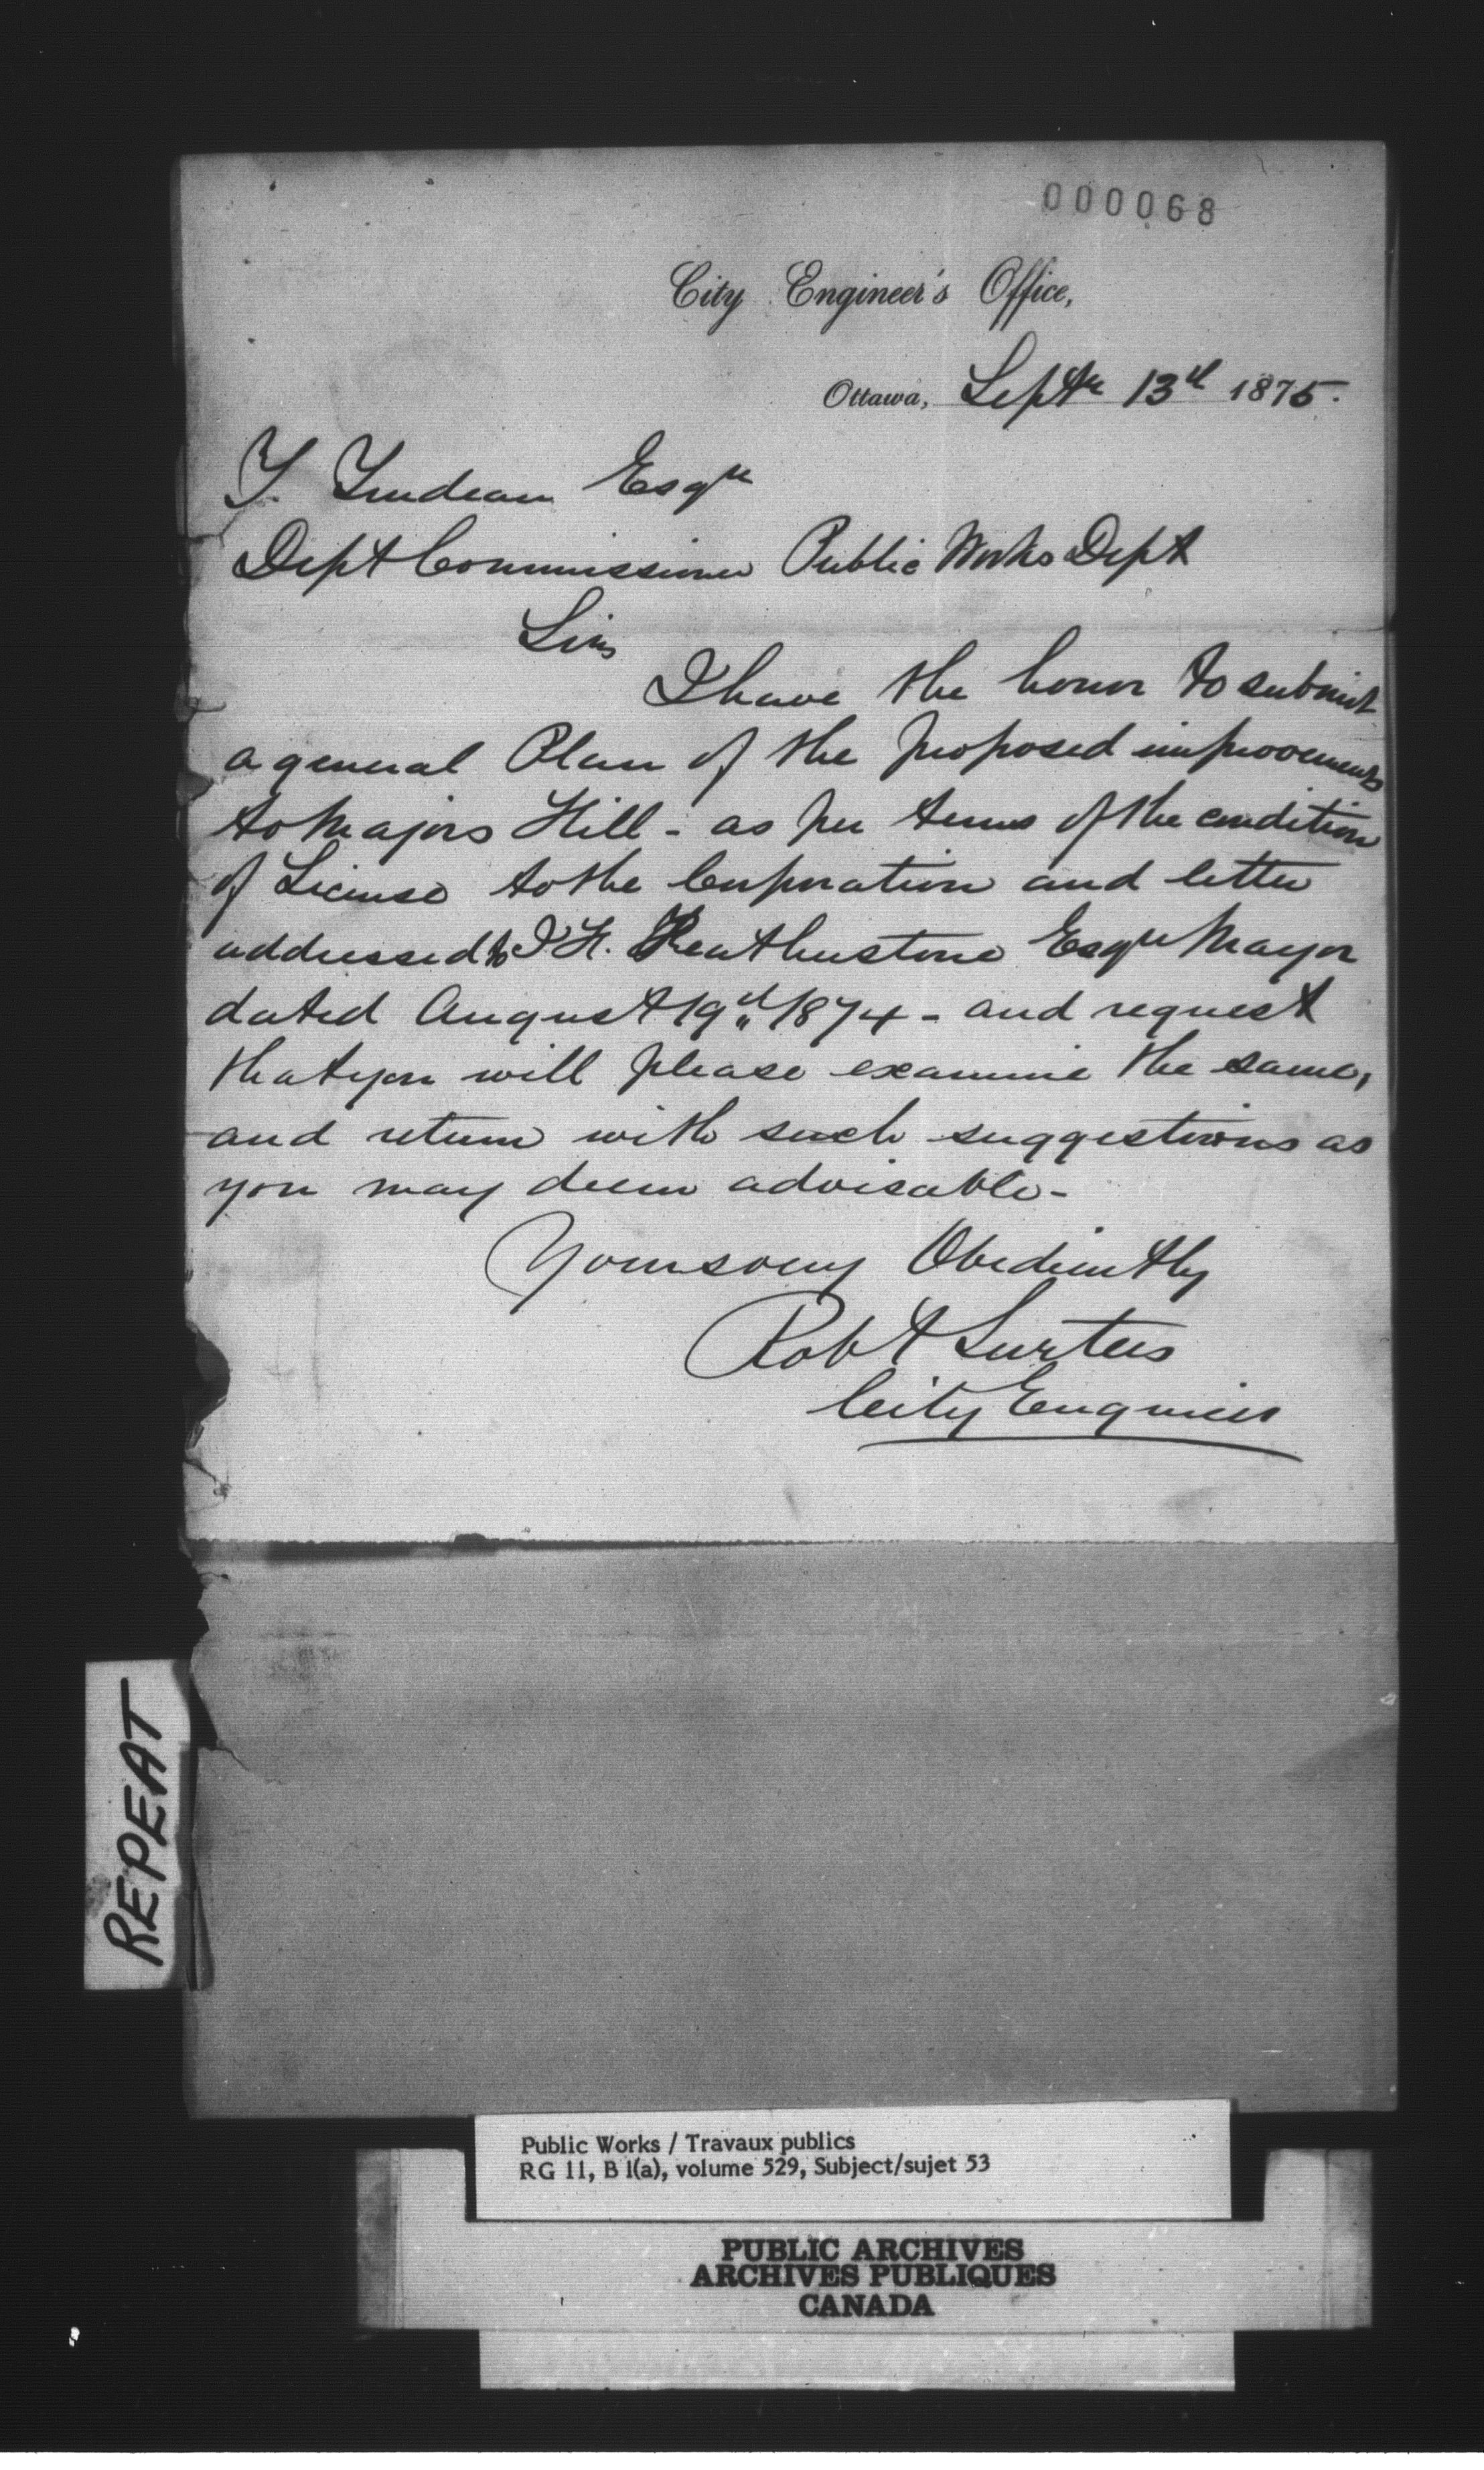 000068
City Engineer's Office,
Ottawa, Septr 13th 1875.
T. Trudeau Esqre
Dept Commissioner Public Works Dept
Sir
I have the honor to submit
a general Plan of the proposed improvements
to Majors Hill - as per terms of the condition
of License to the Corporation and letter
addressed to J.H. Featherstone Esqre Mayor
dated August 19th 1874 - and request
that you will please examine the same,
and return with such suggestions as
you may deem advisable -
Yours very Obediently
Robt Surtees
City Engineer
REPEAT
Public Works / Travaux publics
RG 11, B 1(a), volume 529, Subject/sujet 53
PUBLIC ARCHIVES
ARCHIVES PUBLIQUES
CANADA